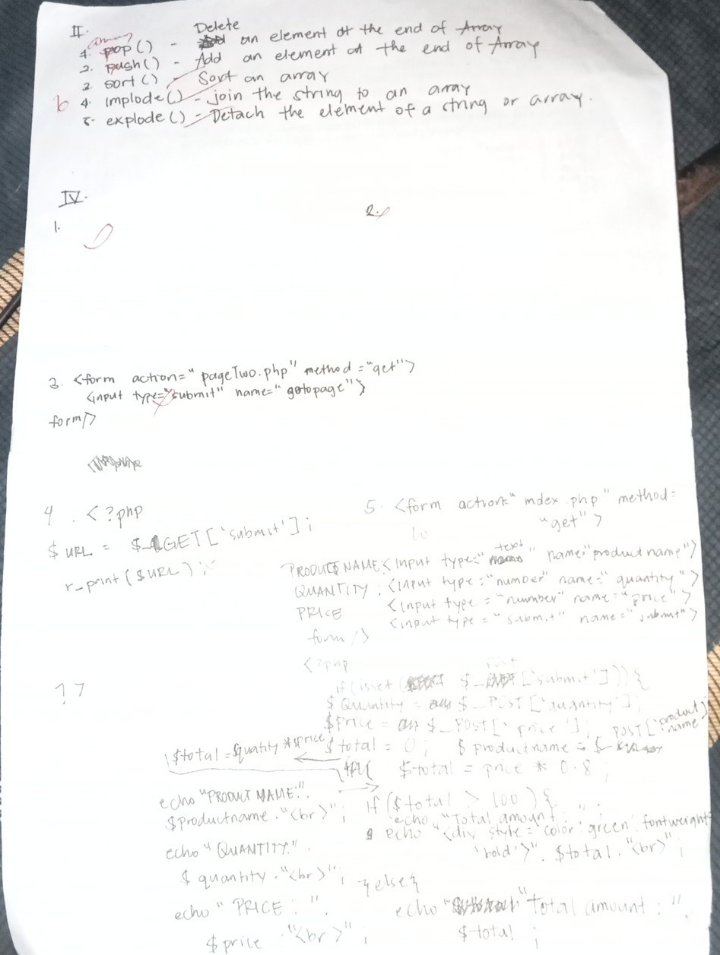 II.
array
Delete
1. pop() - an element at the end of Array
2. push() - Add an element at the end of Array
3. sort() - Sort an array
6
4. implode() - join the string to an array
5. explode() - Detach the element of a string or array.
IV.
1.
2.
3. <form action="pageTwo.php" method="get">
<input type="submit" name="gotopage">
form/>
4. <?php
$URL = $_GET['submit'];
r_print($URL);
?>
5. <form action="index.php" method=
"get">
PRODUCT NAME <input type="text" name="productname">
QUANTITY : <input type="number" name="quantity">
PRICE <input type="number" name="price">
<input type="submit" name="submit">
form/>
<?php
if(isset($_POST['submit'])){
$Quantity = $_POST['quantity'];
$Price = $_POST['price'];
$total = 0; $productname = $_POST['productname']
$total = $quatity * $price
$total = price * 0.8;
if($total > 100){
echo "Total amount : ".
echo "<div style='color:green' fontweight
'bold'>". $total."<br>";
}else{
echo "Total amount : ".
$total ;
echo "PRODUCT NAME:".
$productname."<br>";
echo "QUANTITY".
$quantity."<br>";
echo "PRICE : ".
$price ."<br>";